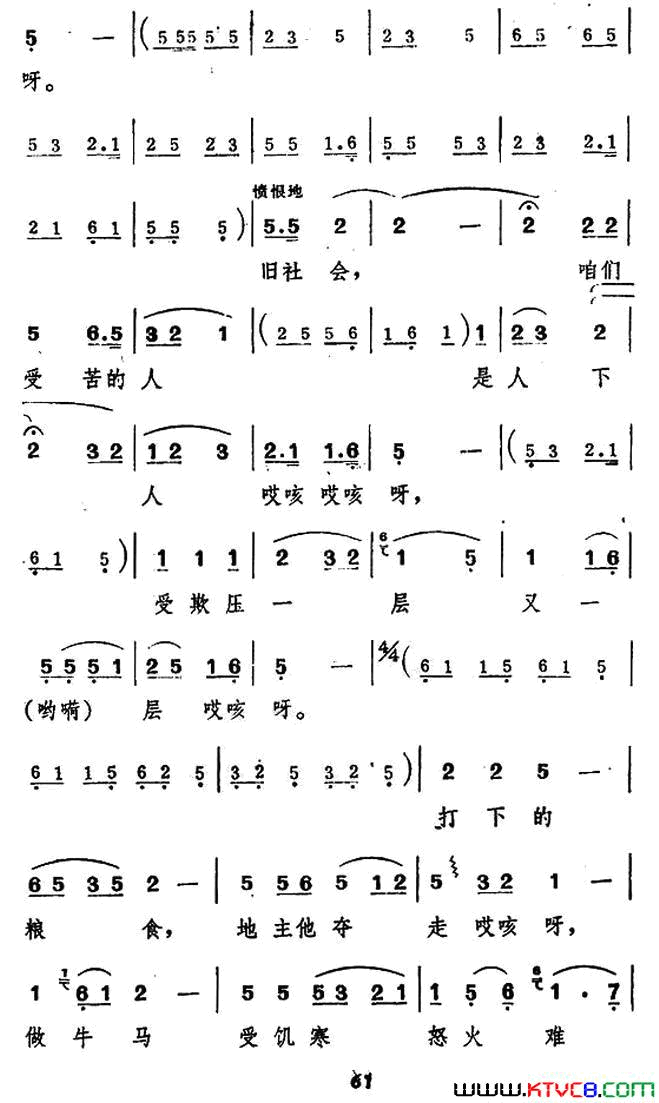 5 — | ( 5 555 5 5 | 2 3 5 | 2 3 5 | 6 5 6 5 |
呀。
5 3 2.1 | 2 5 2 3 | 5 5 1.6 | 5 5 5 3 | 2 3 2.1 |
愤恨地
2 1 6 1 | 5 5 5 ) | 5.5 2 | 2 — | 2 2 2 |
旧社会, 咱们
5 6.5 | 3 2 1 | ( 2 5 5 6 | 1 6 1 ) 1 | 2 3 2 |
受苦的人 是人下
2 3 2 | 1 2 3 | 2.1 1.6 | 5 — | ( 5 3 2.1 |
人 哎咳哎咳呀,
6 1 5 ) | 1 1 1 | 2 3 2 | 6 1 5 | 1 1 6 |
受欺压一层又一
5 5 5 1 | 2 5 1 6 | 5 — | 4/4 ( 6 1 1 5 6 1 5 |
(哟嗬)层哎咳呀。
6 1 1 5 6 2 5 | 3 2 5 3 2 5 ) | 2 2 5 — |
打下的
6 5 3 5 2 — | 5 5 6 5 1 2 | 5 3 2 1 — |
粮食, 地主他夺走哎咳呀,
1 1 6 1 2 — | 5 5 5 3 2 1 | 1 5 6 6 1 . 7 |
做牛马 受饥寒 怒火难
61
www.KTVC8.com